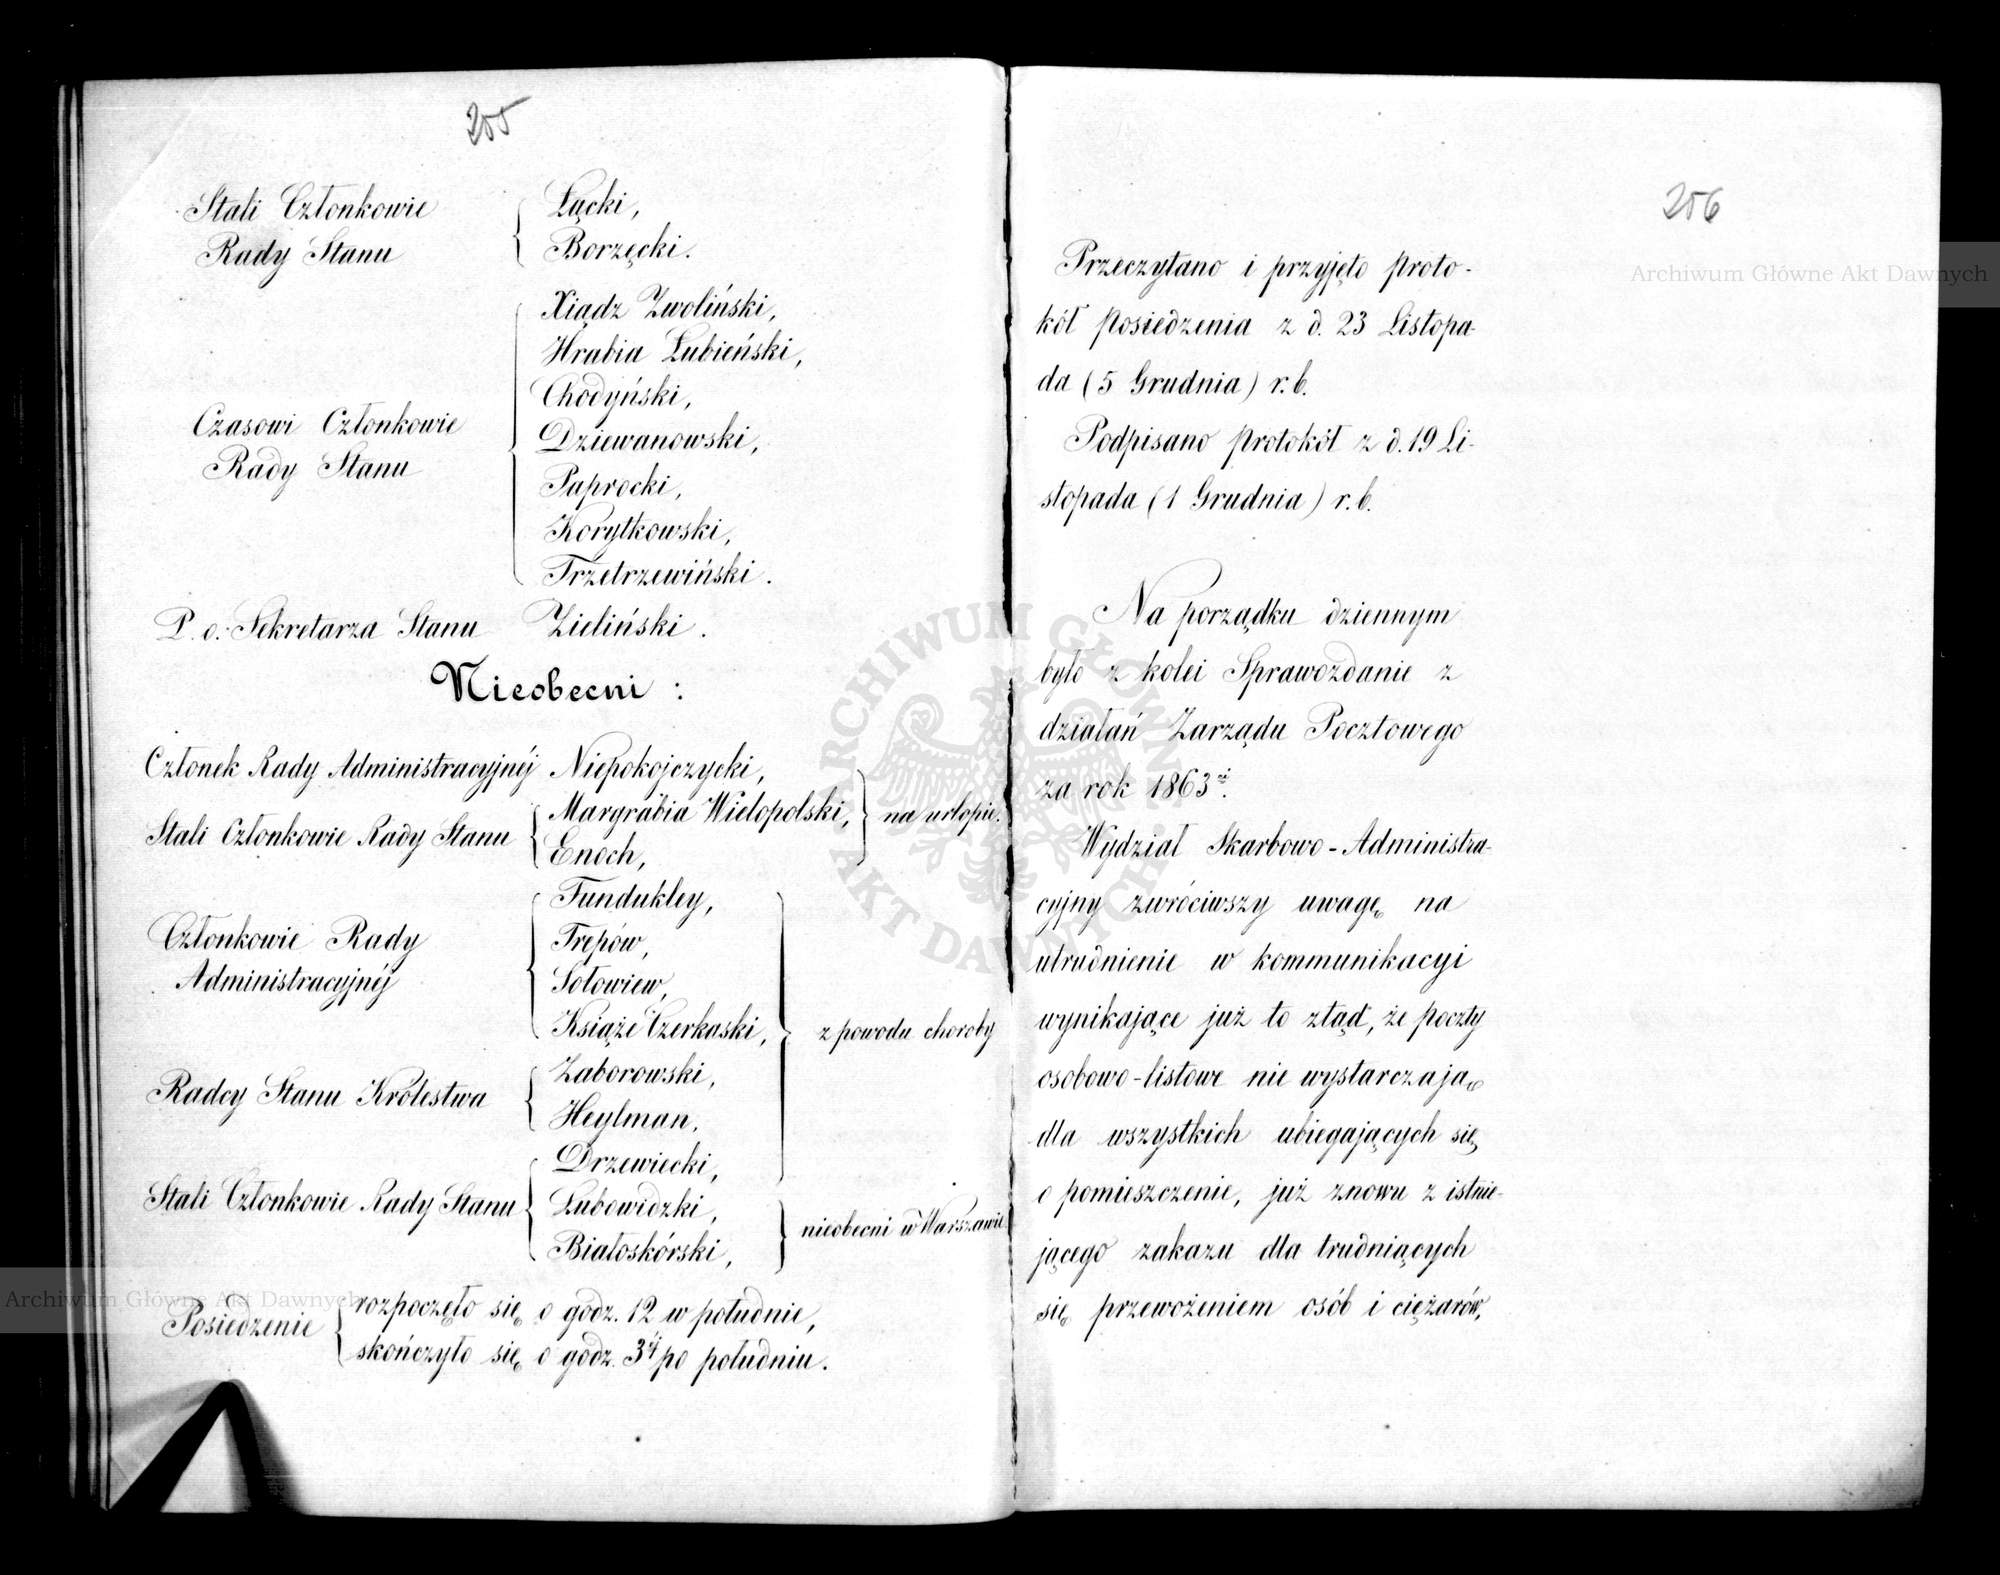 255
Stali Członkowie
Rady Stanu
Łącki,
Borzęcki.
Czasowi Członkowie
Rady Stanu
Xiądz Zwoliński,
Hrabia Łubieński,
Chodyński,
Dziewanowski,
Paprocki,
Korytkowski,
Trzetrzewiński.
P. o. Sekretarza Stanu Zieliński.
Nieobecni:
Członek Rady Administracyjnéj Niepokojczycki,
Stali Członkowie Rady Stanu
Margrabia Wielopolski,
Enoch,
na urlopie.
Członkowie Rady
Administracyjnéj
Fundukley,
Trepów,
Sołowiew,
Książe Czerkaski,
Radcy Stanu Królestwa
Zaborowski,
Heylman,
z powodu choroby
Stali Członkowie Rady Stanu
Drzewiecki,
Lubowidzki,
Białoskórski,
nieobecni w Warszawie.
Posiedzenie
rozpoczęło się o godz. 12 w południe,
skończyło się o godz. 3éj po południu.
256
Przeczytano i przyjęto proto-
kół posiedzenia z d. 23 Listopa-
da (5 Grudnia) r. b.
Podpisano protokół z d. 19 Li-
stopada (1 Grudnia) r. b.
Na porządku dziennym
było z kolei Sprawozdanie z
działań Zarządu Pocztowego
za rok 1863ci.
Wydział Skarbowo-Administra-
cyjny zwróciwszy uwagę na
utrudnienie w kommunikacyi
wynikające już to ztąd, że poczty
osobowo-listowe nie wystarczają
dla wszystkich ubiegających się
o pomieszczenie, już znowu z istnie-
jącego zakazu dla trudniących
się przewożeniem osób i ciężarów,
Archiwum Główne Akt Dawnych
Archiwum Główne Akt Dawnych
ARCHIWUM GŁÓWNE AKT DAWNYCH